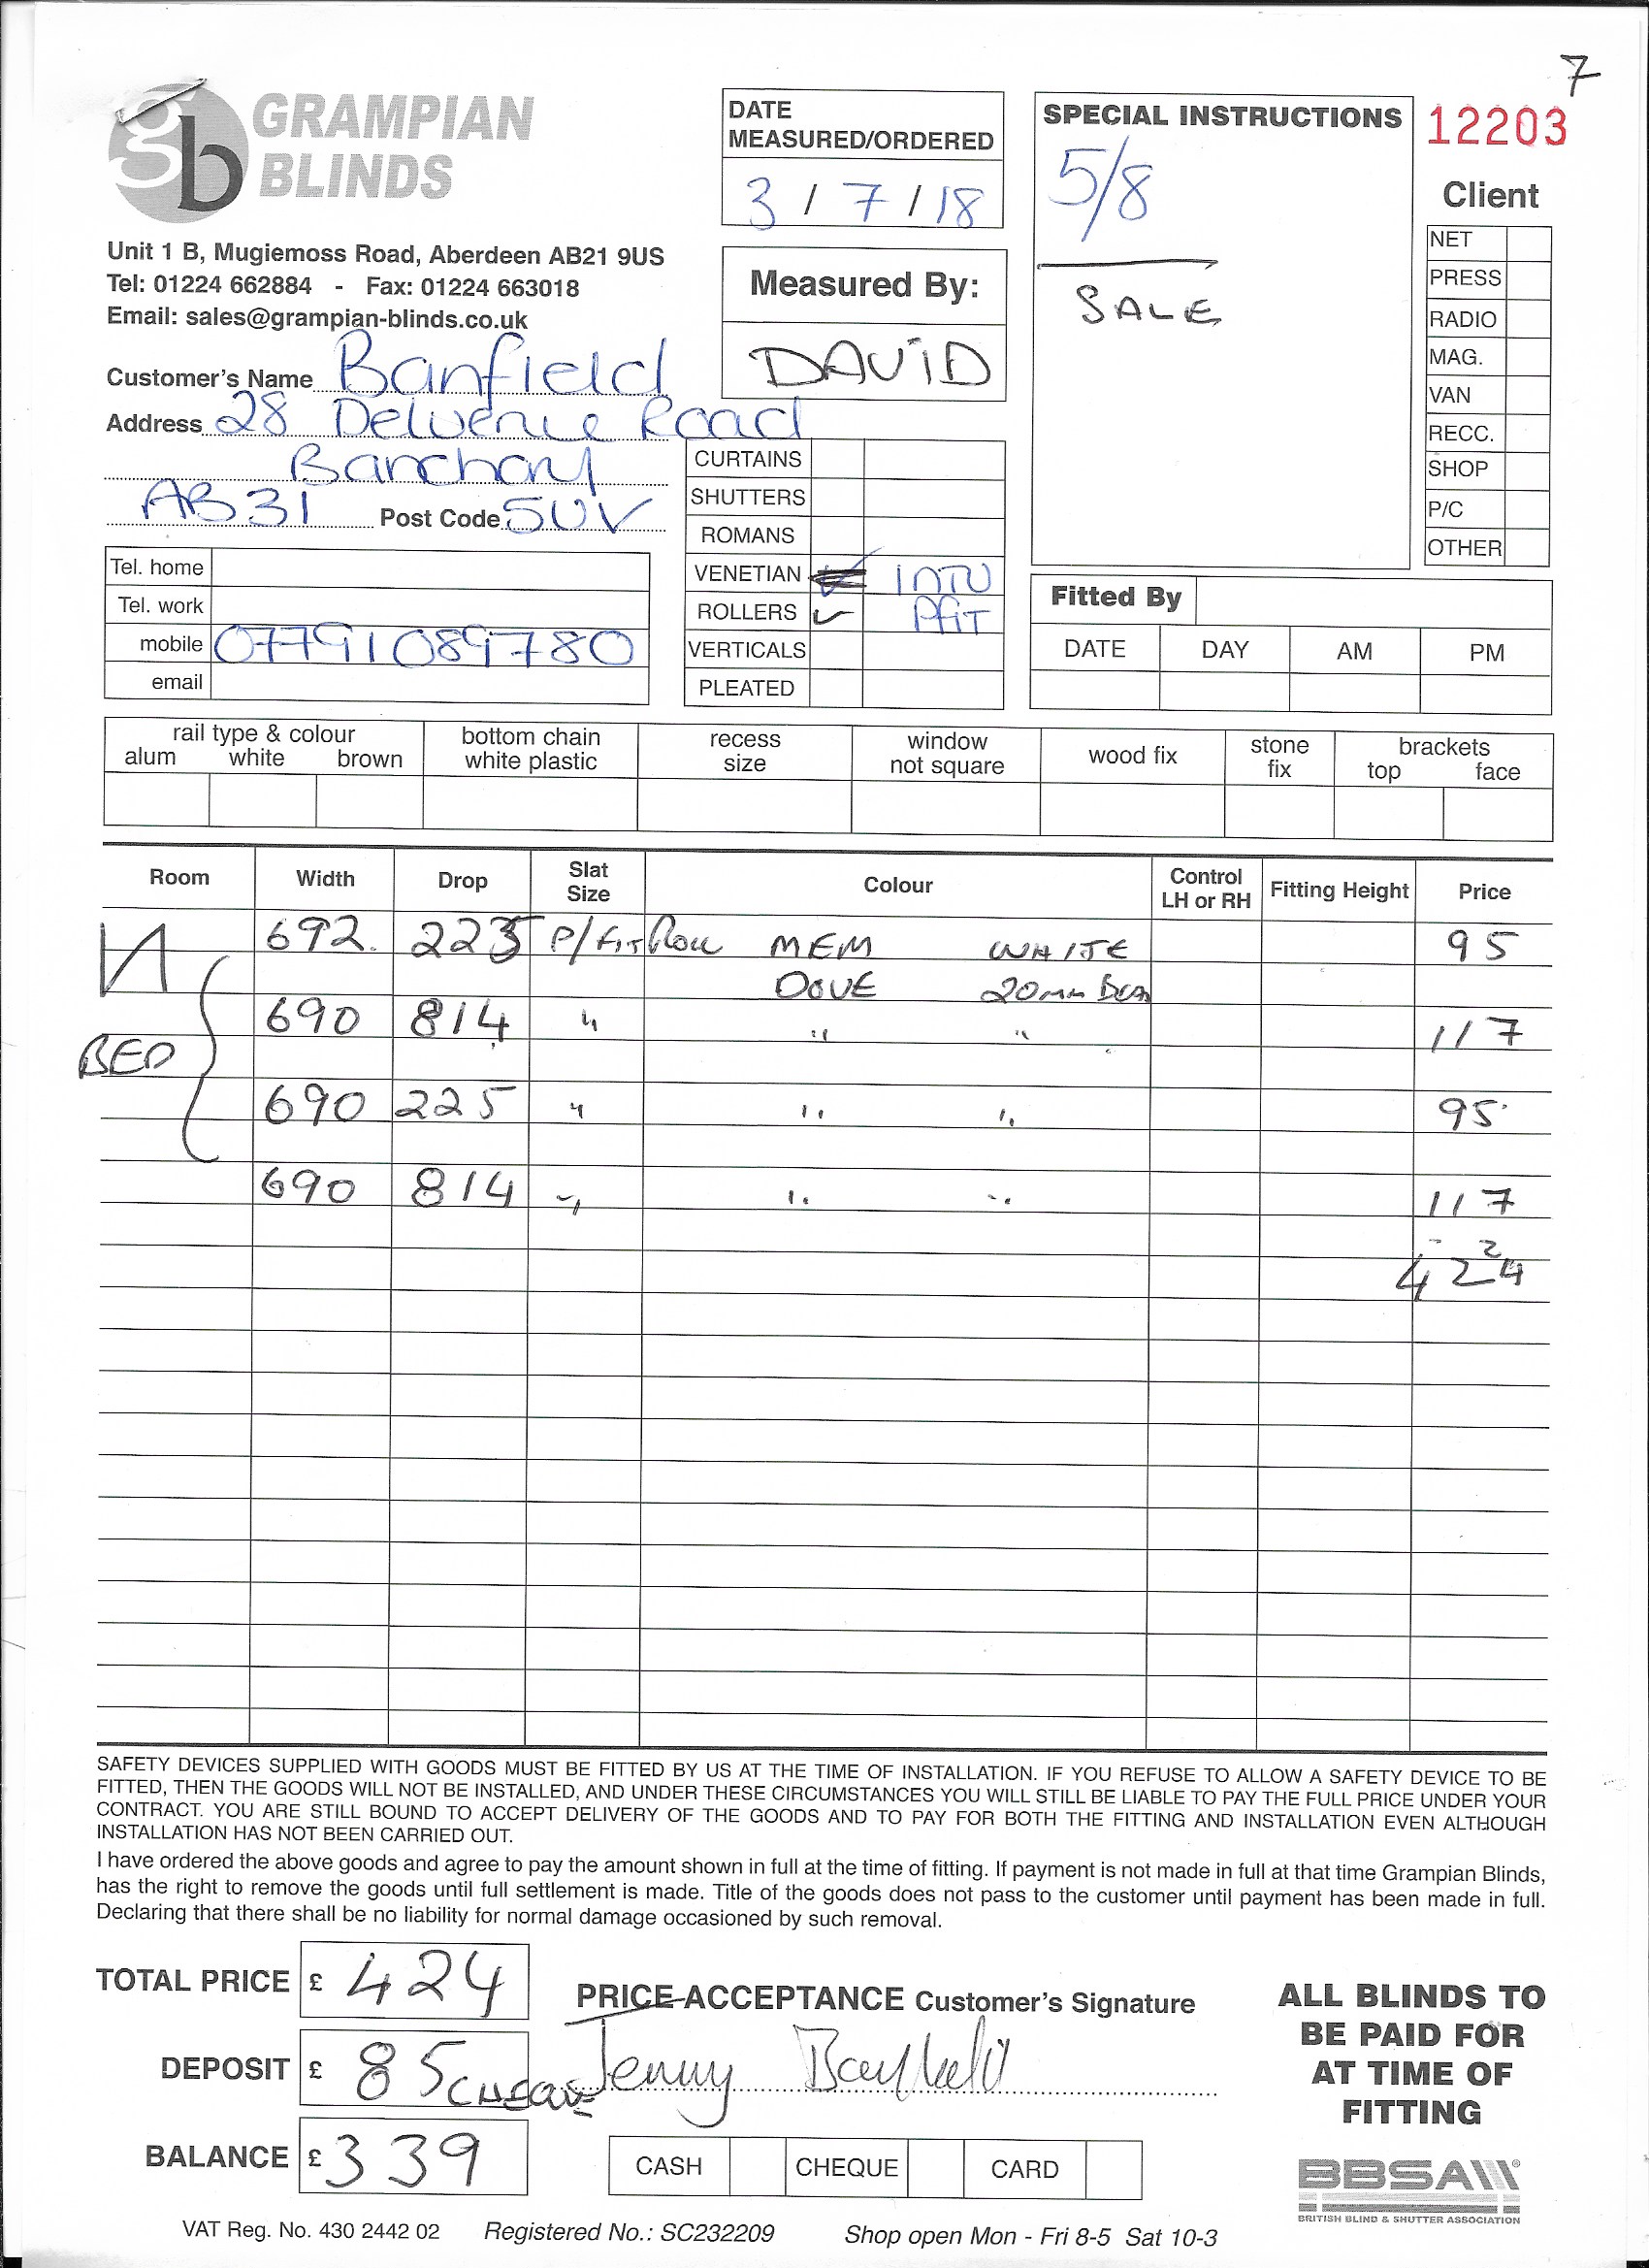 7
GRAMPIAN
BLINDS
gb
Unit 1 B, Mugiemoss Road, Aberdeen AB21 9US
Tel: 01224 662884 - Fax: 01224 663018
Email: sales@grampian-blinds.co.uk
DATE
MEASURED/ORDERED
3 / 7 / 18
Measured By:
DAVID
SPECIAL INSTRUCTIONS
5/8
SALE
12203
Client
NET
PRESS
RADIO
MAG.
VAN
RECC.
SHOP
P/C
OTHER
Customer's Name Banfield
Address 28 Road
Banchory
AB31 Post Code 5UV
Tel. home
Tel. work
mobile 07791089780
email
CURTAINS
SHUTTERS
ROMANS
VENETIAN INTU
ROLLERS ✓ PFIT
VERTICALS
PLEATED
Fitted By
DATE DAY AM PM
rail type & colour
alum white brown
bottom chain
white plastic
recess
size
window
not square
wood fix
stone
fix
brackets
top face
Room Width Drop Slat Size Colour Control LH or RH Fitting Height Price
692 225 P/FIT Roll MEM WHITE 95
DOVE 20mm
690 814 " " " 117
BED
690 225 " " " 95
690 814 " " " 117
2
424
SAFETY DEVICES SUPPLIED WITH GOODS MUST BE FITTED BY US AT THE TIME OF INSTALLATION. IF YOU REFUSE TO ALLOW A SAFETY DEVICE TO BE
FITTED, THEN THE GOODS WILL NOT BE INSTALLED, AND UNDER THESE CIRCUMSTANCES YOU WILL STILL BE LIABLE TO PAY THE FULL PRICE UNDER YOUR
CONTRACT. YOU ARE STILL BOUND TO ACCEPT DELIVERY OF THE GOODS AND TO PAY FOR BOTH THE FITTING AND INSTALLATION EVEN ALTHOUGH
INSTALLATION HAS NOT BEEN CARRIED OUT.
I have ordered the above goods and agree to pay the amount shown in full at the time of fitting. If payment is not made in full at that time Grampian Blinds,
has the right to remove the goods until full settlement is made. Title of the goods does not pass to the customer until payment has been made in full.
Declaring that there shall be no liability for normal damage occasioned by such removal.
TOTAL PRICE £ 424
PRICE ACCEPTANCE Customer's Signature
DEPOSIT £ 85 CHEQUE
Jenny Banfield
BALANCE £ 339
CASH CHEQUE CARD
ALL BLINDS TO
BE PAID FOR
AT TIME OF
FITTING
BBSA
BRITISH BLIND & SHUTTER ASSOCIATION
VAT Reg. No. 430 2442 02 Registered No.: SC232209 Shop open Mon - Fri 8-5 Sat 10-3